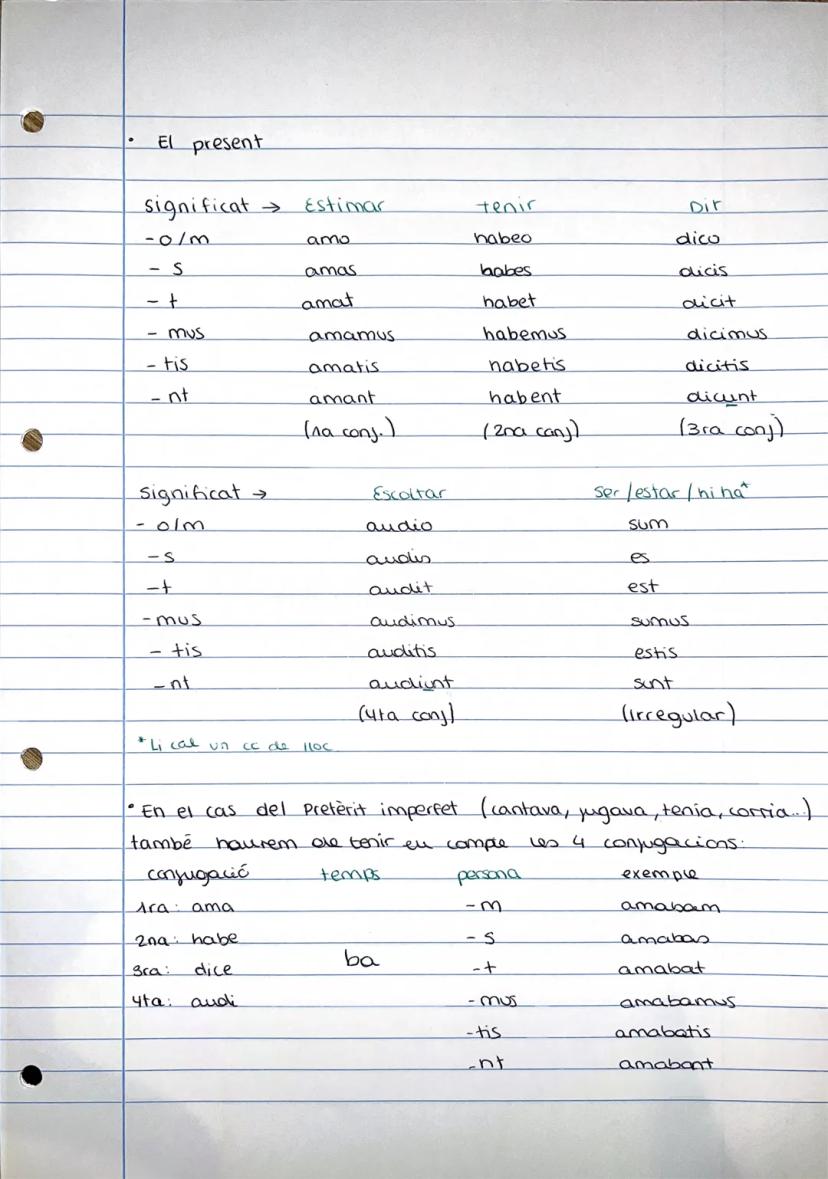 • El present
significat → Estimar tenir Dir
-o/m amo habeo dico
- s amas habes dicis
- t amat habet dicit
- mus amamus habemus dicimus
- tis amatis habetis dicitis
- nt amant habent dicunt
(1a conj.) (2na conj) (3ra conj)
significat → Escoltar Ser/estar/hi ha*
- o/m audio sum
-s audis es
-t audit est
-mus audimus sumus
- tis auditis estis
- nt audiunt sunt
(4ta conj) (irregular)
*Li cal un cc de lloc
• En el cas del Pretèrit imperfet (cantava, jugava, tenia, corria...)
també haurem de tenir en compte les 4 conjugacions:
conjugació temps persona exemple
1ra: ama -m amabam
2na: habe - s amabas
3ra: dice ba -t amabat
4ta: audi - mus amabamus
-tis amabatis
-nt amabant